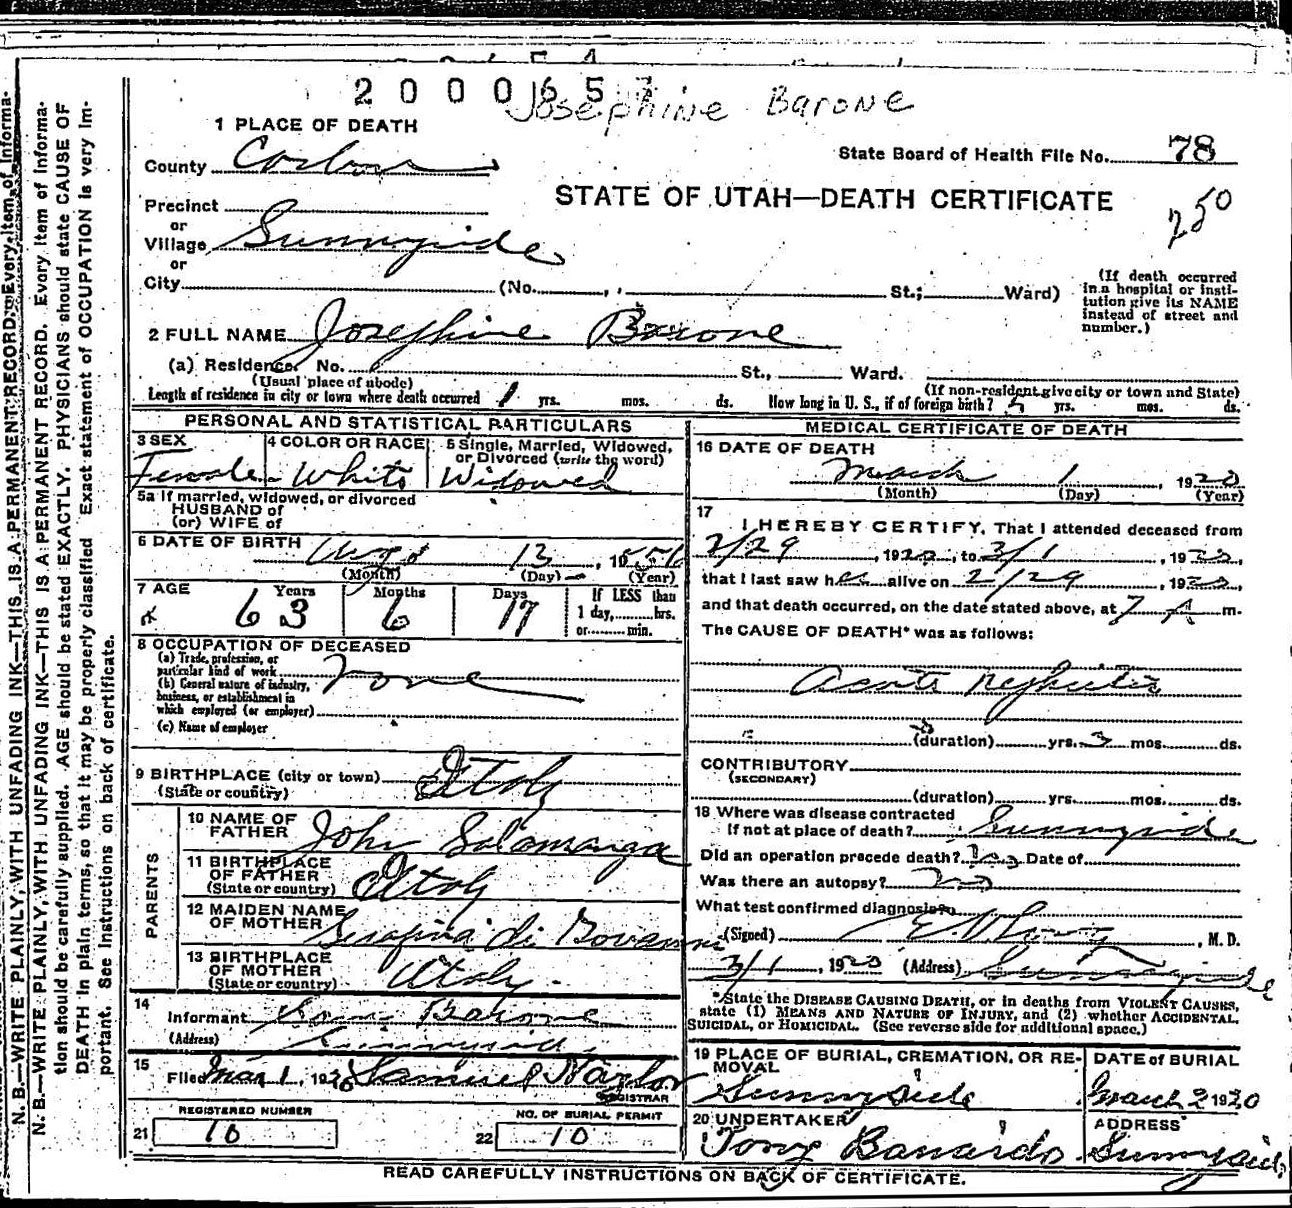 2000657
Josephine Barone
1 PLACE OF DEATH
County Carbon
State Board of Health File No. 78
STATE OF UTAH—DEATH CERTIFICATE
250
Precinct
or
Village Sunnyside
or
City (No. St.; Ward)
(If death occurred in a hospital or institution give its NAME instead of street and number.)
2 FULL NAME Josephine Barone
(a) Residence. No. St., Ward.
(Usual place of abode) (If non-resident give city or town and State)
Length of residence in city or town where death occurred 1 yrs. mos. ds. How long in U. S., if of foreign birth? 5 yrs. mos. ds.
PERSONAL AND STATISTICAL PARTICULARS
3 SEX Female
4 COLOR OR RACE White
5 Single, Married, Widowed, or Divorced (write the word) Widowed
5a If married, widowed, or divorced
HUSBAND of
(or) WIFE of
6 DATE OF BIRTH Aug 13, 1856
(Month) (Day) (Year)
7 AGE 63 Years 6 Months 17 Days
If LESS than 1 day, hrs. or min.
8 OCCUPATION OF DECEASED
(a) Trade, profession, or particular kind of work None
(b) General nature of industry, business, or establishment in which employed (or employer)
(c) Name of employer
9 BIRTHPLACE (city or town) Italy
(State or country)
PARENTS
10 NAME OF FATHER John Salamanga
11 BIRTHPLACE OF FATHER (State or country) Italy
12 MAIDEN NAME OF MOTHER Serafina di Govanni
13 BIRTHPLACE OF MOTHER (State or country) Italy
14
Informant Sam Barone
(Address) Sunnyside
15
Filed Mar 1, 1920 Samuel Naylor
REGISTRAR
REGISTERED NUMBER
21 10
NO. OF BURIAL PERMIT
22 10
MEDICAL CERTIFICATE OF DEATH
16 DATE OF DEATH
March 1, 1920
(Month) (Day) (Year)
17
I HEREBY CERTIFY, That I attended deceased from
2/29, 1920, to 3/1, 1920,
that I last saw her alive on 2/29, 1920,
and that death occurred, on the date stated above, at 7 A m.
The CAUSE OF DEATH* was as follows:
Acute Nephritis
(duration) yrs. 3 mos. ds.
CONTRIBUTORY
(SECONDARY)
(duration) yrs. mos. ds.
18 Where was disease contracted
If not at place of death? Sunnyside
Did an operation precede death? Date of
Was there an autopsy? no
What test confirmed diagnosis?
(Signed) , M. D.
3/1, 1920 (Address) Sunnyside
*State the DISEASE CAUSING DEATH, or in deaths from VIOLENT CAUSES, state (1) MEANS AND NATURE OF INJURY, and (2) whether ACCIDENTAL, SUICIDAL, or HOMICIDAL. (See reverse side for additional space.)
19 PLACE OF BURIAL, CREMATION, OR REMOVAL
Sunnyside
DATE of BURIAL
March 2 1920
20 UNDERTAKER
Tony Banardo
ADDRESS
Sunnyside
READ CAREFULLY INSTRUCTIONS ON BACK OF CERTIFICATE.
N. B.—WRITE PLAINLY, WITH UNFADING INK—THIS IS A PERMANENT RECORD. Every item of informa-
N. B.—WRITE PLAINLY, WITH UNFADING INK—THIS IS A PERMANENT RECORD. Every item of informa-
tion should be carefully supplied. AGE should be stated EXACTLY. PHYSICIANS should state CAUSE OF
DEATH in plain terms, so that it may be properly classified. Exact statement of OCCUPATION is very im-
portant. See instructions on back of certificate.